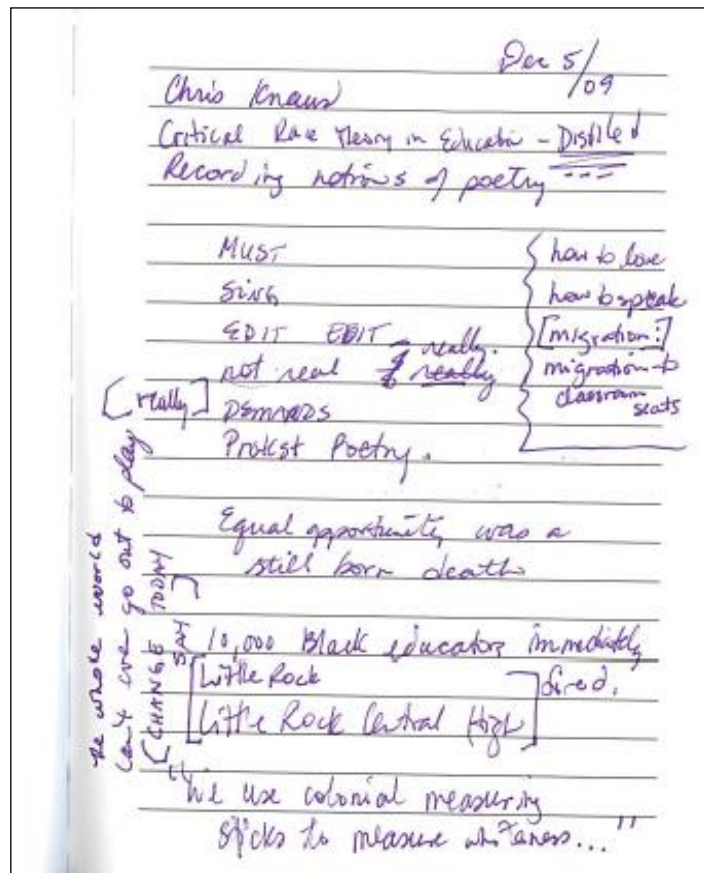 Dec 5/09
Chris Knaus
Critical Race Theory in Education - Distilled
Recording notions of poetry
MUST
SING
EDIT EDIT
not real really.
really
[really]
DEMANDS
Protest Poetry.
{ how to love
how to speak
[migration:]
migration to
classroom
seats
Equal opportunity was a
still born death
10,000 Black educators immediately
[Little Rock
Little Rock Central High] fired.
"We use colonial measuring
sticks to measure whiteness..."
whole world
can't we go out to play
(CHANGE DAY TODAY)